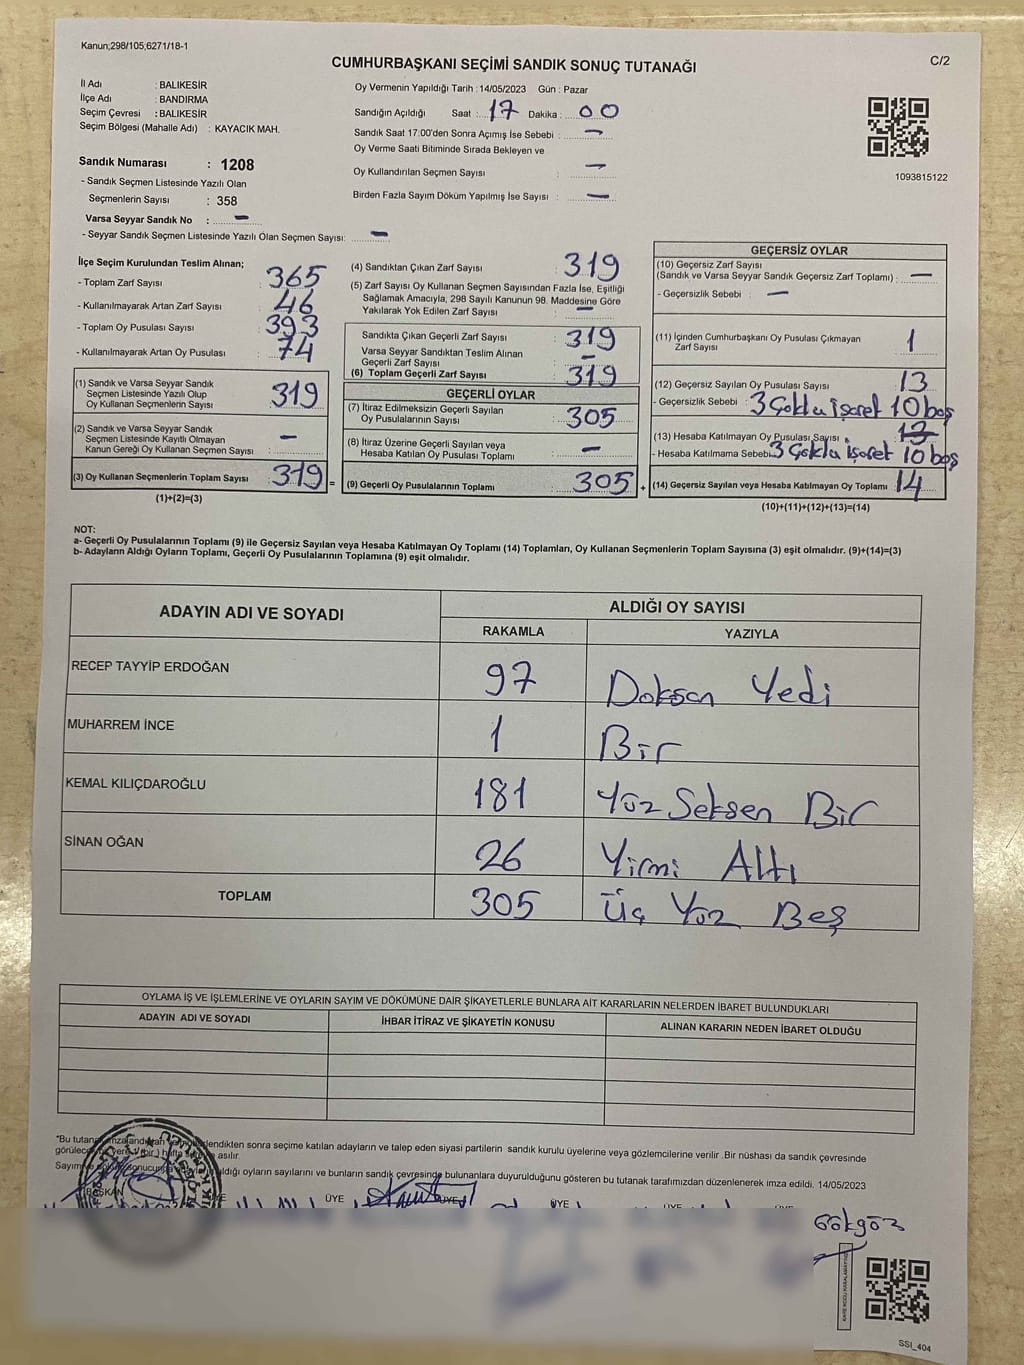 Kanun;298/105;6271/18-1
C/2
CUMHURBAŞKANI SEÇİMİ SANDIK SONUÇ TUTANAĞI
İl Adı : BALIKESİR
İlçe Adı : BANDIRMA
Seçim Çevresi : BALIKESİR
Seçim Bölgesi (Mahalle Adı) : KAYACIK MAH.
Sandık Numarası : 1208
- Sandık Seçmen Listesinde Yazılı Olan
Seçmenlerin Sayısı : 358
Varsa Seyyar Sandık No : -
- Seyyar Sandık Seçmen Listesinde Yazılı Olan Seçmen Sayısı: -
Oy Vermenin Yapıldığı Tarih : 14/05/2023 Gün : Pazar
Sandığın Açıldığı Saat : 17 Dakika : 00
Sandık Saat 17:00'den Sonra Açımış İse Sebebi : -
Oy Verme Saati Bitiminde Sırada Bekleyen ve
Oy Kullandırılan Seçmen Sayısı : -
Birden Fazla Sayım Döküm Yapılmış İse Sayısı : -
1093815122
İlçe Seçim Kurulundan Teslim Alınan;
- Toplam Zarf Sayısı : 365
- Kullanılmayarak Artan Zarf Sayısı : 46
- Toplam Oy Pusulası Sayısı : 393
- Kullanılmayarak Artan Oy Pusulası : 74
(1) Sandık ve Varsa Seyyar Sandık
Seçmen Listesinde Yazılı Olup
Oy Kullanan Seçmenlerin Sayısı : 319
(2) Sandık ve Varsa Seyyar Sandık
Seçmen Listesinde Kayıtlı Olmayan
Kanun Gereği Oy Kullanan Seçmen Sayısı : -
(3) Oy Kullanan Seçmenlerin Toplam Sayısı : 319 =
(1)+(2)=(3)
(4) Sandıktan Çıkan Zarf Sayısı : 319
(5) Zarf Sayısı Oy Kullanan Seçmen Sayısından Fazla İse, Eşitliği
Sağlamak Amacıyla, 298 Sayılı Kanunun 98. Maddesine Göre
Yakılarak Yok Edilen Zarf Sayısı : -
Sandıkta Çıkan Geçerli Zarf Sayısı : 319
Varsa Seyyar Sandıktan Teslim Alınan
Geçerli Zarf Sayısı : -
(6) Toplam Geçerli Zarf Sayısı : 319
GEÇERLİ OYLAR
(7) İtiraz Edilmeksizin Geçerli Sayılan
Oy Pusulalarının Sayısı : 305
(8) İtiraz Üzerine Geçerli Sayılan veya
Hesaba Katılan Oy Pusulası Toplamı : -
(9) Geçerli Oy Pusulalarının Toplamı : 305 +
GEÇERSİZ OYLAR
(10) Geçersiz Zarf Sayısı
(Sandık ve Varsa Seyyar Sandık Geçersiz Zarf Toplamı) : -
- Geçersizlik Sebebi : -
(11) İçinden Cumhurbaşkanı Oy Pusulası Çıkmayan
Zarf Sayısı : 1
(12) Geçersiz Sayılan Oy Pusulası Sayısı : 13
- Geçersizlik Sebebi : 3 Çoklu işaret 10 boş
(13) Hesaba Katılmayan Oy Pusulası Sayısı : 13
- Hesaba Katılmama Sebebi : 3 Çoklu işaret 10 boş
(14) Geçersiz Sayılan veya Hesaba Katılmayan Oy Toplamı : 14
(10)+(11)+(12)+(13)=(14)
NOT:
a- Geçerli Oy Pusulalarının Toplamı (9) ile Geçersiz Sayılan veya Hesaba Katılmayan Oy Toplamı (14) Toplamları, Oy Kullanan Seçmenlerin Toplam Sayısına (3) eşit olmalıdır. (9)+(14)=(3)
b- Adayların Aldığı Oyların Toplamı, Geçerli Oy Pusulalarının Toplamına (9) eşit olmalıdır.
ADAYIN ADI VE SOYADI ALDIĞI OY SAYISI
RAKAMLA YAZIYLA
RECEP TAYYİP ERDOĞAN 97 Doksan Yedi
MUHARREM İNCE 1 Bir
KEMAL KILIÇDAROĞLU 181 Yüz Seksen Bir
SİNAN OĞAN 26 Yirmi Altı
TOPLAM 305 Üç Yüz Beş
OYLAMA İŞ VE İŞLEMLERİNE VE OYLARIN SAYIM VE DÖKÜMÜNE DAİR ŞİKAYETLERLE BUNLARA AİT KARARLARIN NELERDEN İBARET BULUNDUKLARI
ADAYIN ADI VE SOYADI İHBAR İTİRAZ VE ŞİKAYETİN KONUSU ALINAN KARARIN NEDEN İBARET OLDUĞU
"Bu tutanak sonra seçime katılan adayların ve talep eden siyasi partilerin sandık kurulu üyelerine veya gözlemcilerine verilir .Bir nüshası da sandık çevresinde
(bir) hafta asılır.
Sayım aldığı oyların sayılarını ve bunların sandık çevresinde bulunanlara duyurulduğunu gösteren bu tutanak tarafımızdan düzenlenerek imza edildi. 14/05/2023
BAŞKAN ÜYE ÜYE ÜYE ÜYE ÜYE
Gökgöz
SSI_404